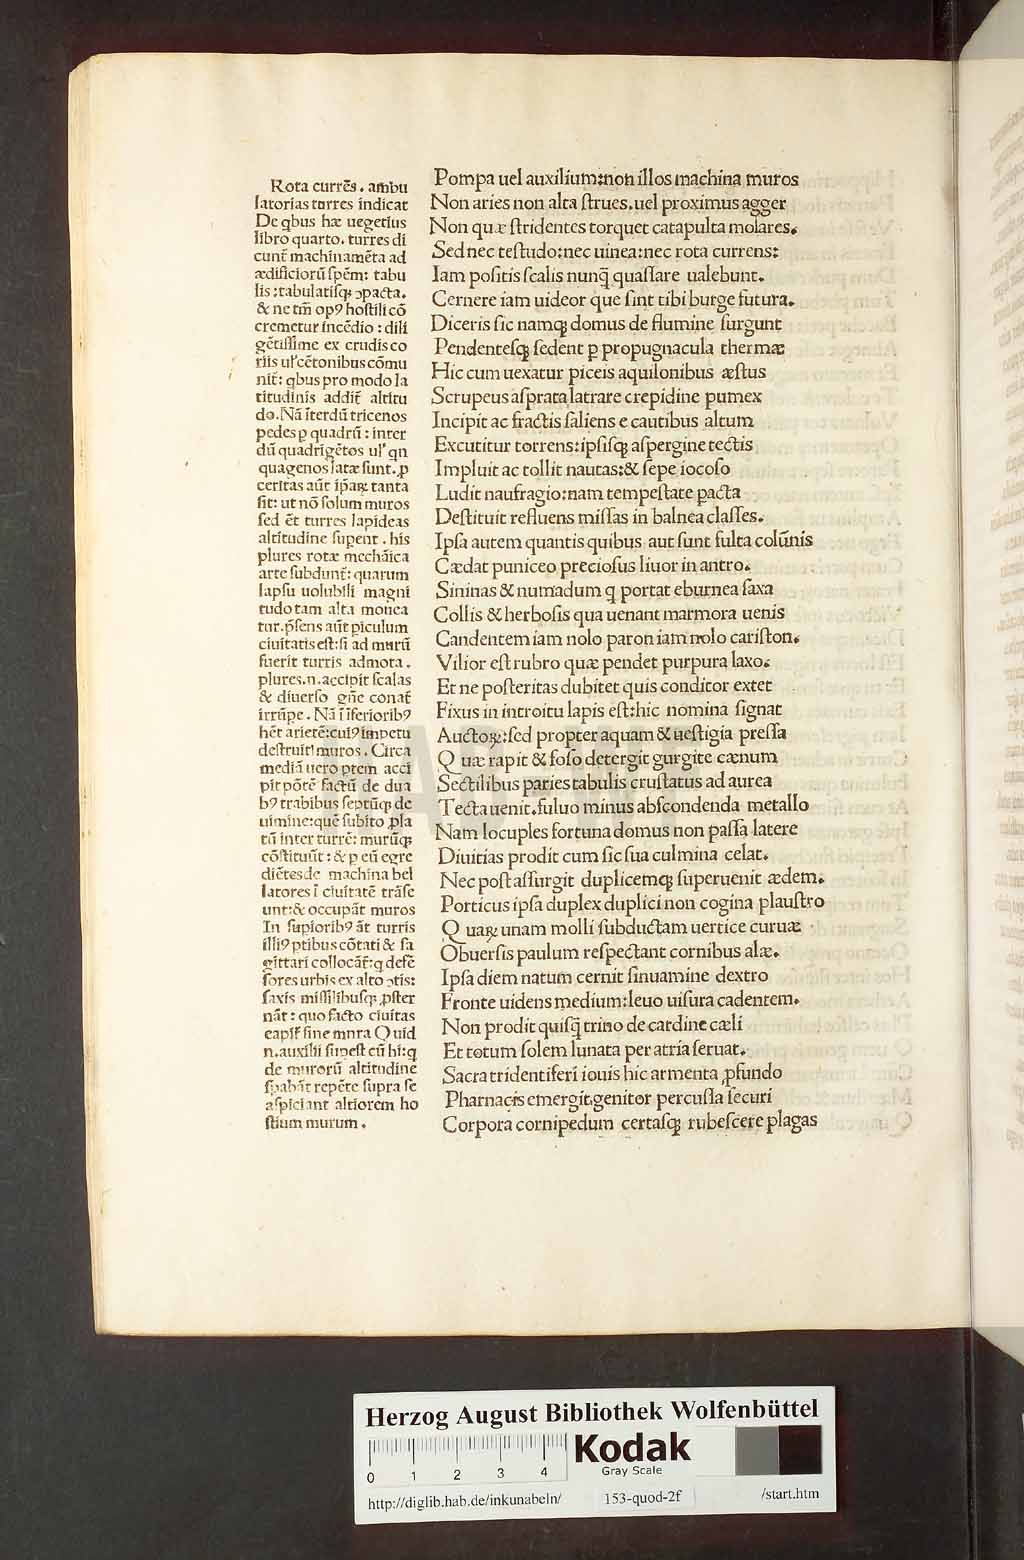 Rota currēs. ambu
latorias turres indicat
De qbus hæ uegetius
libro quarto. turres di
cunt̄ machinamēta ad
ædificiorū spēm: tabu
lis: tabulatisqꝫ ↄpacta.
& ne tm̄ opꝰ hostili cō
cremetur incēdio: dili
gētissime ex crudis co
riis ul' cētonibus cōmu
nit̄: qbus pro modo la
titudinis addit̄ altitu
do. Nā īterdū tricenos
pedes ꝑ quadrū: inter
dū quadrīgētos ul' qn
quagenos latæ sunt. ꝓ
ceritas aūt ip̄aꝝ tanta
sit: ut nō solum muros
sed ēt turres lapideas
altitudine supent. his
plures rotæ mechāica
arte subdunt̄: quarum
lapsu uolubili magni
tudo tam alta mouea
tur. p̄sens aūt piculum
ciuitatis est: si ad murū
fuerit turris admota.
plures.n.accipit scalas
& diuerso gn̄e conat̄
irrūpe. Nā ī īferioribꝰ
hēt arietē: cuiꝰ impetu
destruit muros. Circa
mediā uero ptem acci
pit pōtē factū de dua
bꝰ trabibus septūqꝫ de
uimine: quē subito ꝓla
tū inter turrē: murūqꝫ
cōstituūt: & p eū egre
diētes de machina bel
latores ī ciuitatē trāse
unt: & occupāt muros
In supioribꝰ āt turris
illiꝰ ptibus cōtati & sa
gittari collocāt̄: q defē
sores urbis ex alto ↄtis:
saxis missilibusqꝫ ꝓster
nāt: quo facto ciuitas
capit̄ sine mora Quid
n. auxilii supest cū hi: q
de murorū altitudine
spabāt repēte supra se
aspiciant altiorem ho
stium murum.
Pompa uel auxilium: non illos machina muros
Non aries non alta strues. uel proximus agger
Non quæ stridentes torquet catapulta molares.
Sed nec testudo: nec uinea: nec rota currens:
Iam positis scalis nunq̄ quassare ualebunt.
Cernere iam uideor que sint tibi burge futura.
Diceris sic namqꝫ domus de flumine surgunt
Pendentesqꝫ sedent p propugnacula thermæ
Hic cum uexatur piceis aquilonibus æstus
Scrupeus asprata latrare crepidine pumex
Incipit ac fractis saliens e cautibus altum
Excutitur torrens: ipsisqꝫ aspergine tectis
Impluit ac tollit nautas: & sepe iocoso
Ludit naufragio: nam tempestate pacta
Destituit refluens missas in balnea classes.
Ipsa autem quantis quibus aut sunt fulta colūnis
Cædat puniceo preciosus liuor in antro.
Sininas & numadum q portat eburnea saxa
Collis & herbosis qua uenant marmora uenis
Candentem iam nolo paron iam nolo cariston.
Vilior est rubro quæ pendet purpura laxo.
Et ne posteritas dubitet quis conditor extet
Fixus in introitu lapis est: hic nomina signat
Auctoꝝ: sed propter aquam & uestigia pressa
Quæ rapit & foso detergit gurgite cænum
Sectilibus paries tabulis crustatus ad aurea
Tecta uenit. fuluo minus abscondenda metallo
Nam locuples fortuna domus non passa latere
Diuitias prodit cum sic sua culmina celat.
Nec post assurgit duplicemqꝫ superuenit ædem.
Porticus ipsa duplex duplici non cogina plaustro
Quaꝝ unam molli subductam uertice curuæ
Obuersis paulum respectant cornibus alæ.
Ipsa diem natum cernit sinuamine dextro
Fronte uidens medium: leuo uisura cadentem.
Non prodit quisq̄ trino de cardine cæli
Et totum solem lunata per atria seruat.
Sacra tridentiferi iouis hic armenta ꝓfundo
Pharnacis emergit. genitor percussa securi
Corpora cornipedum certasqꝫ rubescere plagas
HAB - WF
Herzog August Bibliothek Wolfenbüttel
Kodak
Gray Scale
0 1 2 3 4
http://diglib.hab.de/inkunabeln/ 153-quod-2f /start.htm